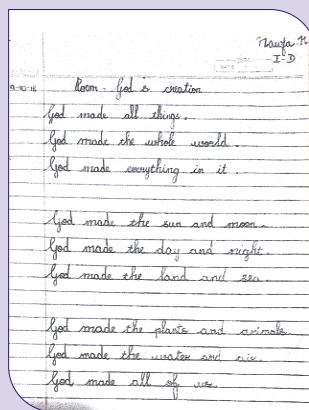 Nawfa. H
I - D
9-10-18
Poem - God is creation
God made all things.
God made the whole world.
God made everything in it.
God made the sun and moon.
God made the day and night.
God made the land and sea.
God made the plants and animals.
God made the water and air.
God made all of us.